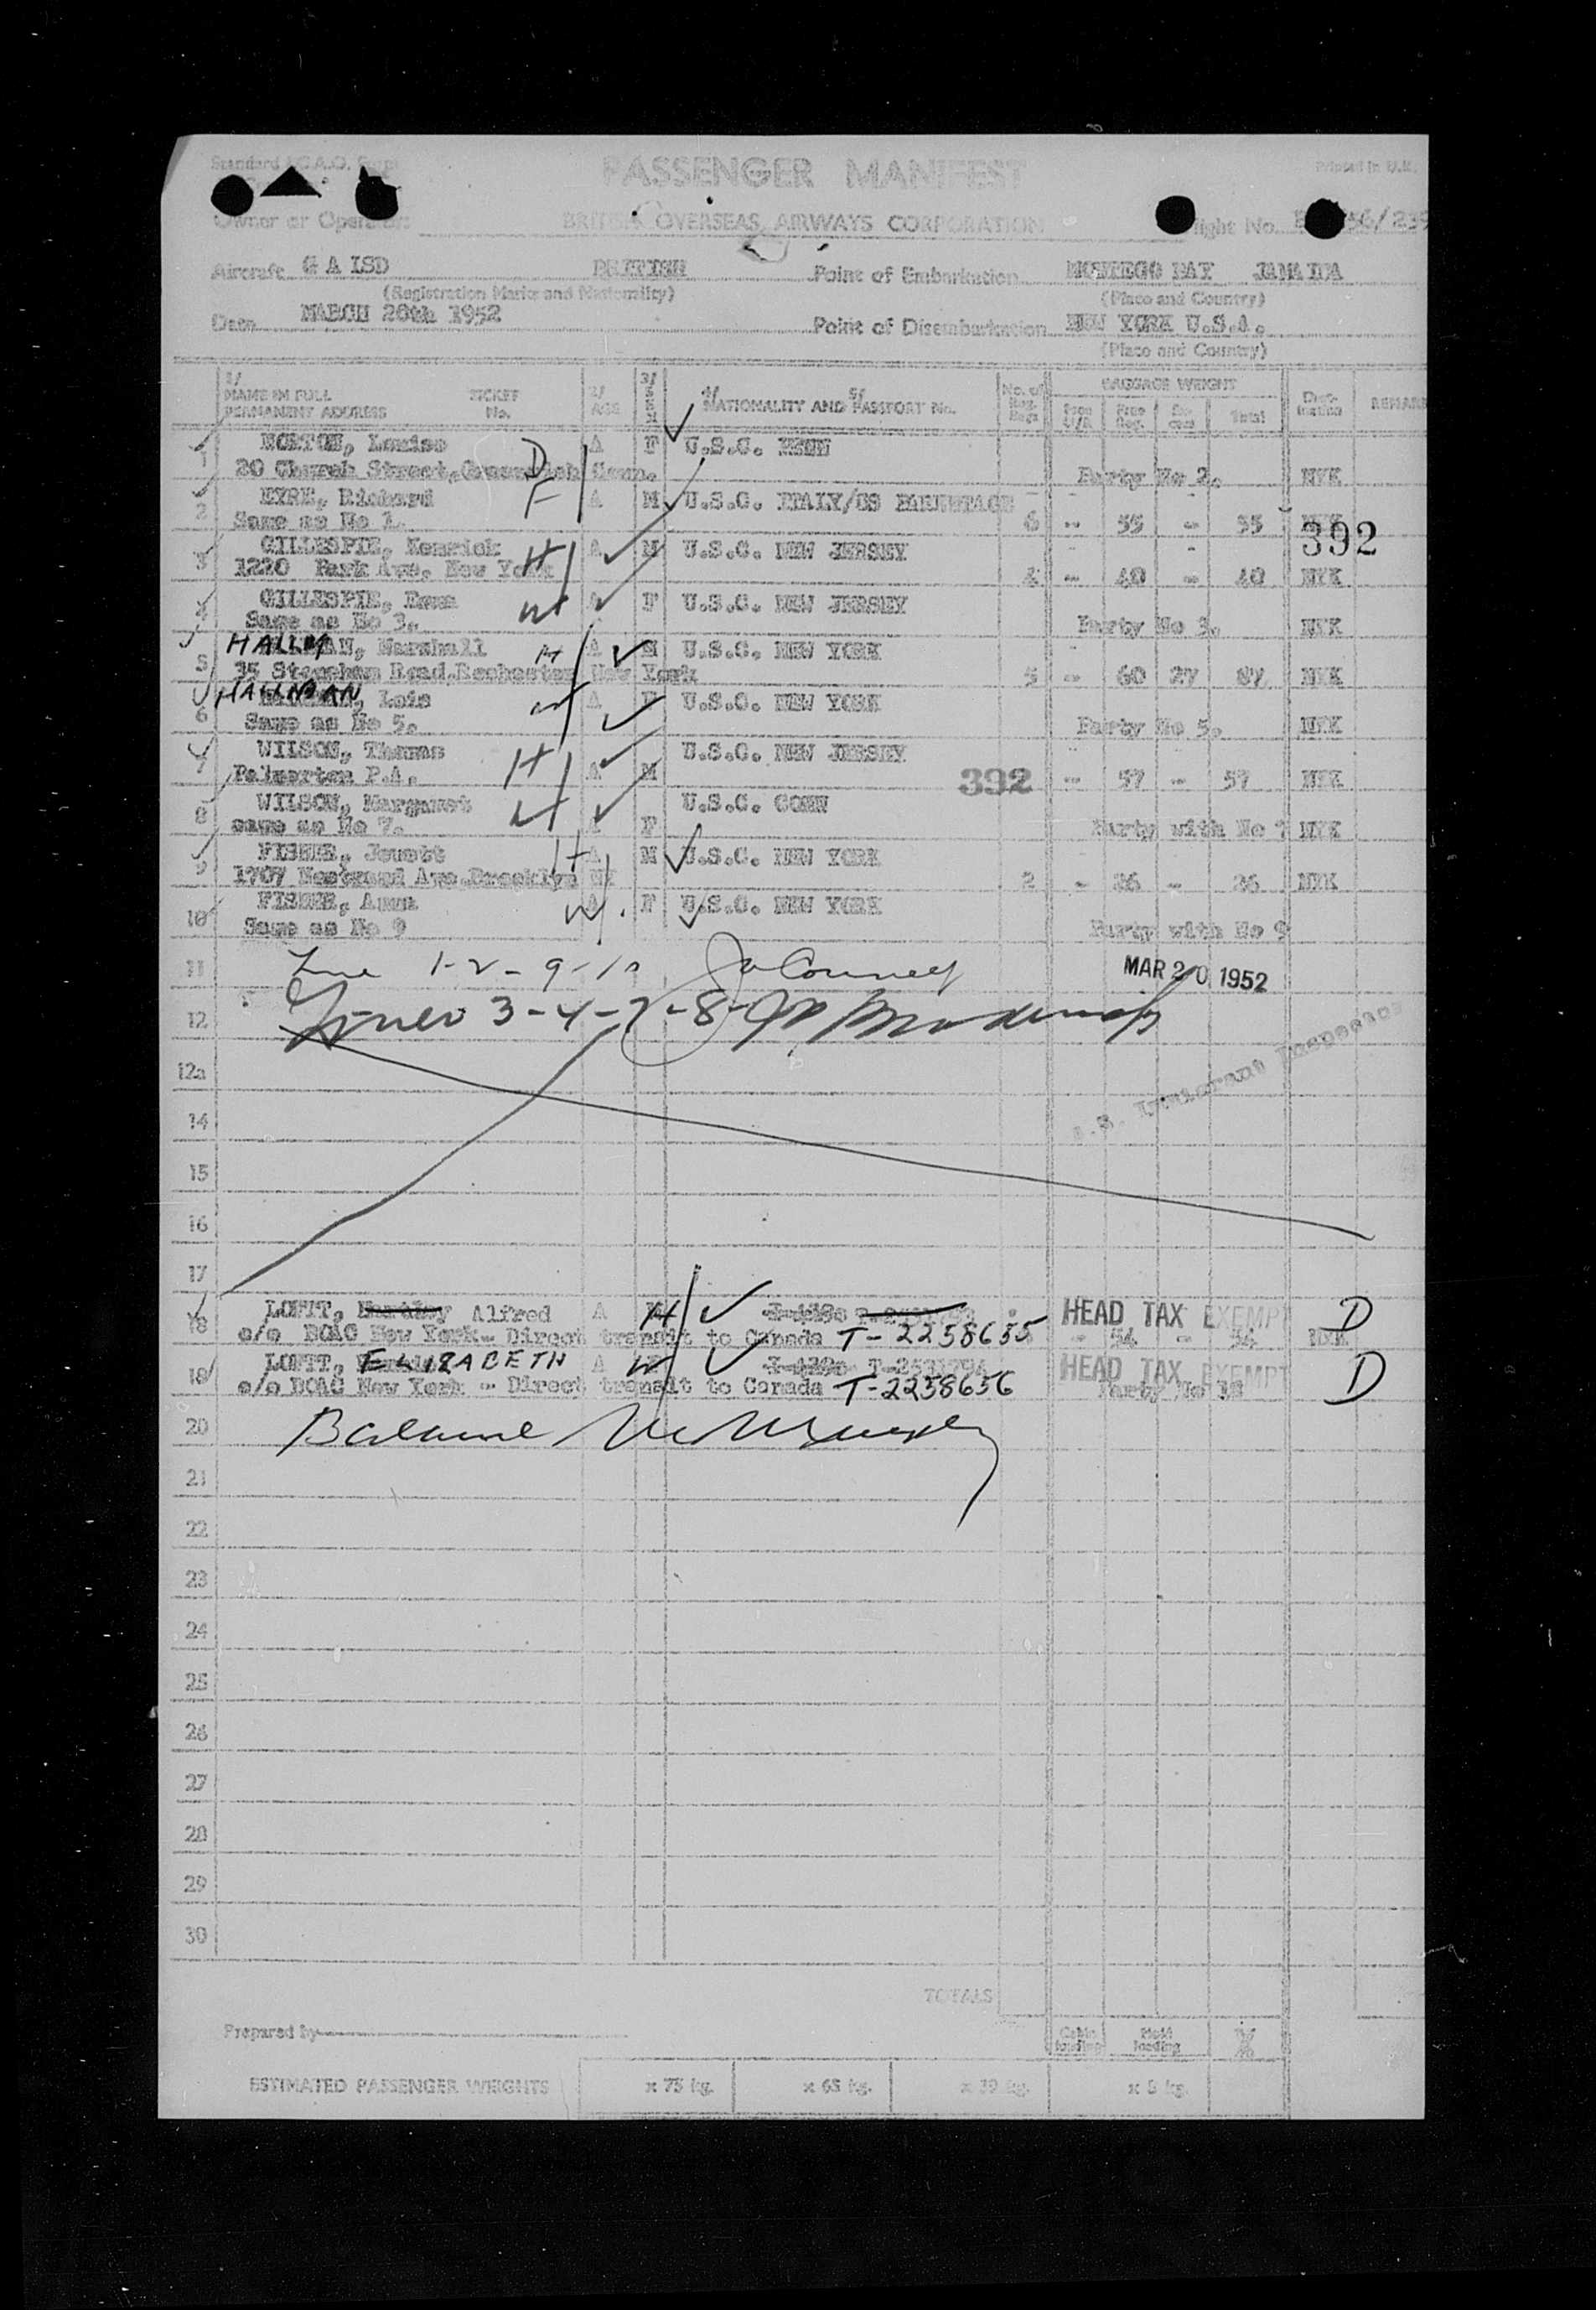 Standard I.C.A.O.
PASSENGER MANIFEST
Printed in U.K.
Owner or Operator
BRITISH OVERSEAS AIRWAYS CORPORATION
Flight No. 56/235
Aircraft G A LSD BRITISH Point of Embarkation MONTEGO BAY JAMAICA
(Registration Marks and Nationality) (Place and Country)
Date MARCH 20th 1952 Point of Disembarkation NEW YORK U.S.A.
(Place and Country)
1/ NAME IN FULL PERMANENT ADDRESS TICKET No. 2/ AGE 3/ SEX 4/ 5/ NATIONALITY AND PASSPORT No. No. of BAGGAGE WEIGHT Total REMARKS
1 Louise D A F U.S.C.
20 Church Street, Greenwich Conn. Party No 2. NYK
2 EYRE, Richard F A M U.S.C. ITALY/US PARENTAGE
Same as No 1. 6 - 55 - 55 NYK
392
3 GILLESPIE, Kenrick H A M U.S.C. NEW JERSEY
1220 Park Ave, New York 4 - 40 - 40 NYK
4 GILLESPIE, W A F U.S.C. NEW JERSEY
Same as No 3. Party No 3. NYK
5 HALLMAN, Marshall H A M U.S.C. NEW YORK
35 Road, Rochester New York 5 - 60 27 87 NYK
6 HALLMAN, Lois W A F U.S.C. NEW YORK
Same as No 5. Party No 5. NYK
7 WILSON, Thomas H U.S.C. NEW JERSEY
Palmerton P.A. A M 392 - 57 - 57 NYK
8 WILSON, Margaret W U.S.C. CONN
same as No 7. F Party with No 7 NYK
9 FISHER, H A M U.S.C. NEW YORK
1707 Ave. Brooklyn NY 2 - 26 - 26 NYK
10 FISHER, Anna W A F U.S.C. NEW YORK
Same as No 9 Party with No 9
11 Line 1-2-9-10
MAR 20 1952
12 Lines 3-4-7-8
U.S. Immigrant Inspector
12a
14
15
16
17
18 LOFFT, Alfred A M H HEAD TAX EXEMPT D
c/o BOAC New York - Direct transit to Canada T-2258655 - 54 - 54 NYK
19 LOFFT, ELIZABETH A W HEAD TAX EXEMPT D
c/o BOAC New York - Direct transit to Canada T-2258656 Party No 18
20 Balance
21
22
23
24
25
26
27
28
29
30
TOTALS
Prepared by
Cabin loading Hold loading
ESTIMATED PASSENGER WEIGHTS x 75 kg. x 65 kg. x 39 kg. x 8 kg.